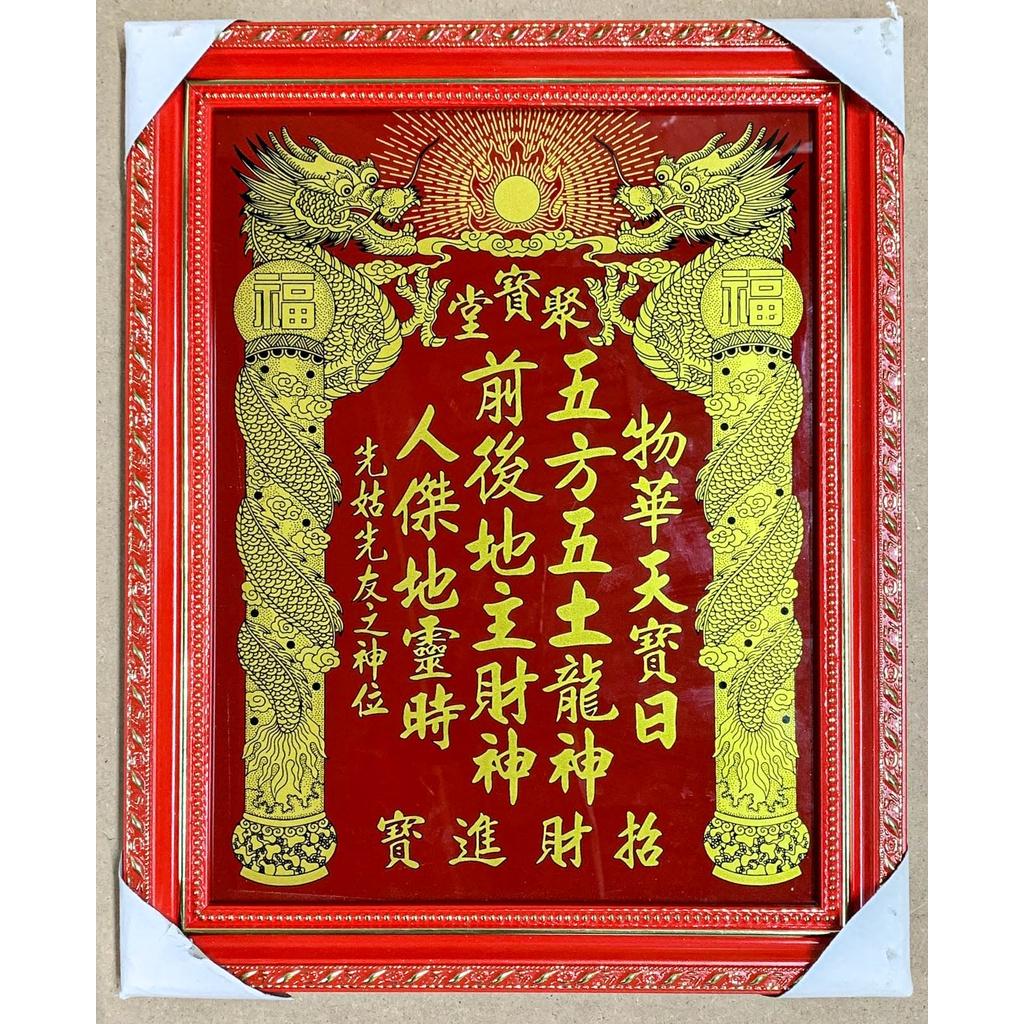 聚寶堂
福
福
物華天寶日
五方五土龍神
前後地主財神
人傑地靈時
先姑先友之神位
招財進寶